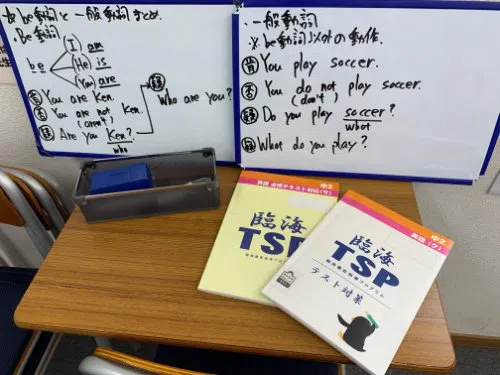 ☆be動詞と一般動詞まとめ
・Be動詞
be
I am
He is
You are
肯 You are Ken.
否 You are not Ken.
(aren't)
疑 Are you Ken?
who
疑 Who are you?
・一般動詞
※be動詞以外の動作。
肯 You play soccer.
否 You do not play soccer.
(don't)
疑 Do you play soccer?
what
疑 What do you play?
中2
臨海
TSP
中2
英語
臨海
TSP
臨海最低指導プログラム
テスト対策